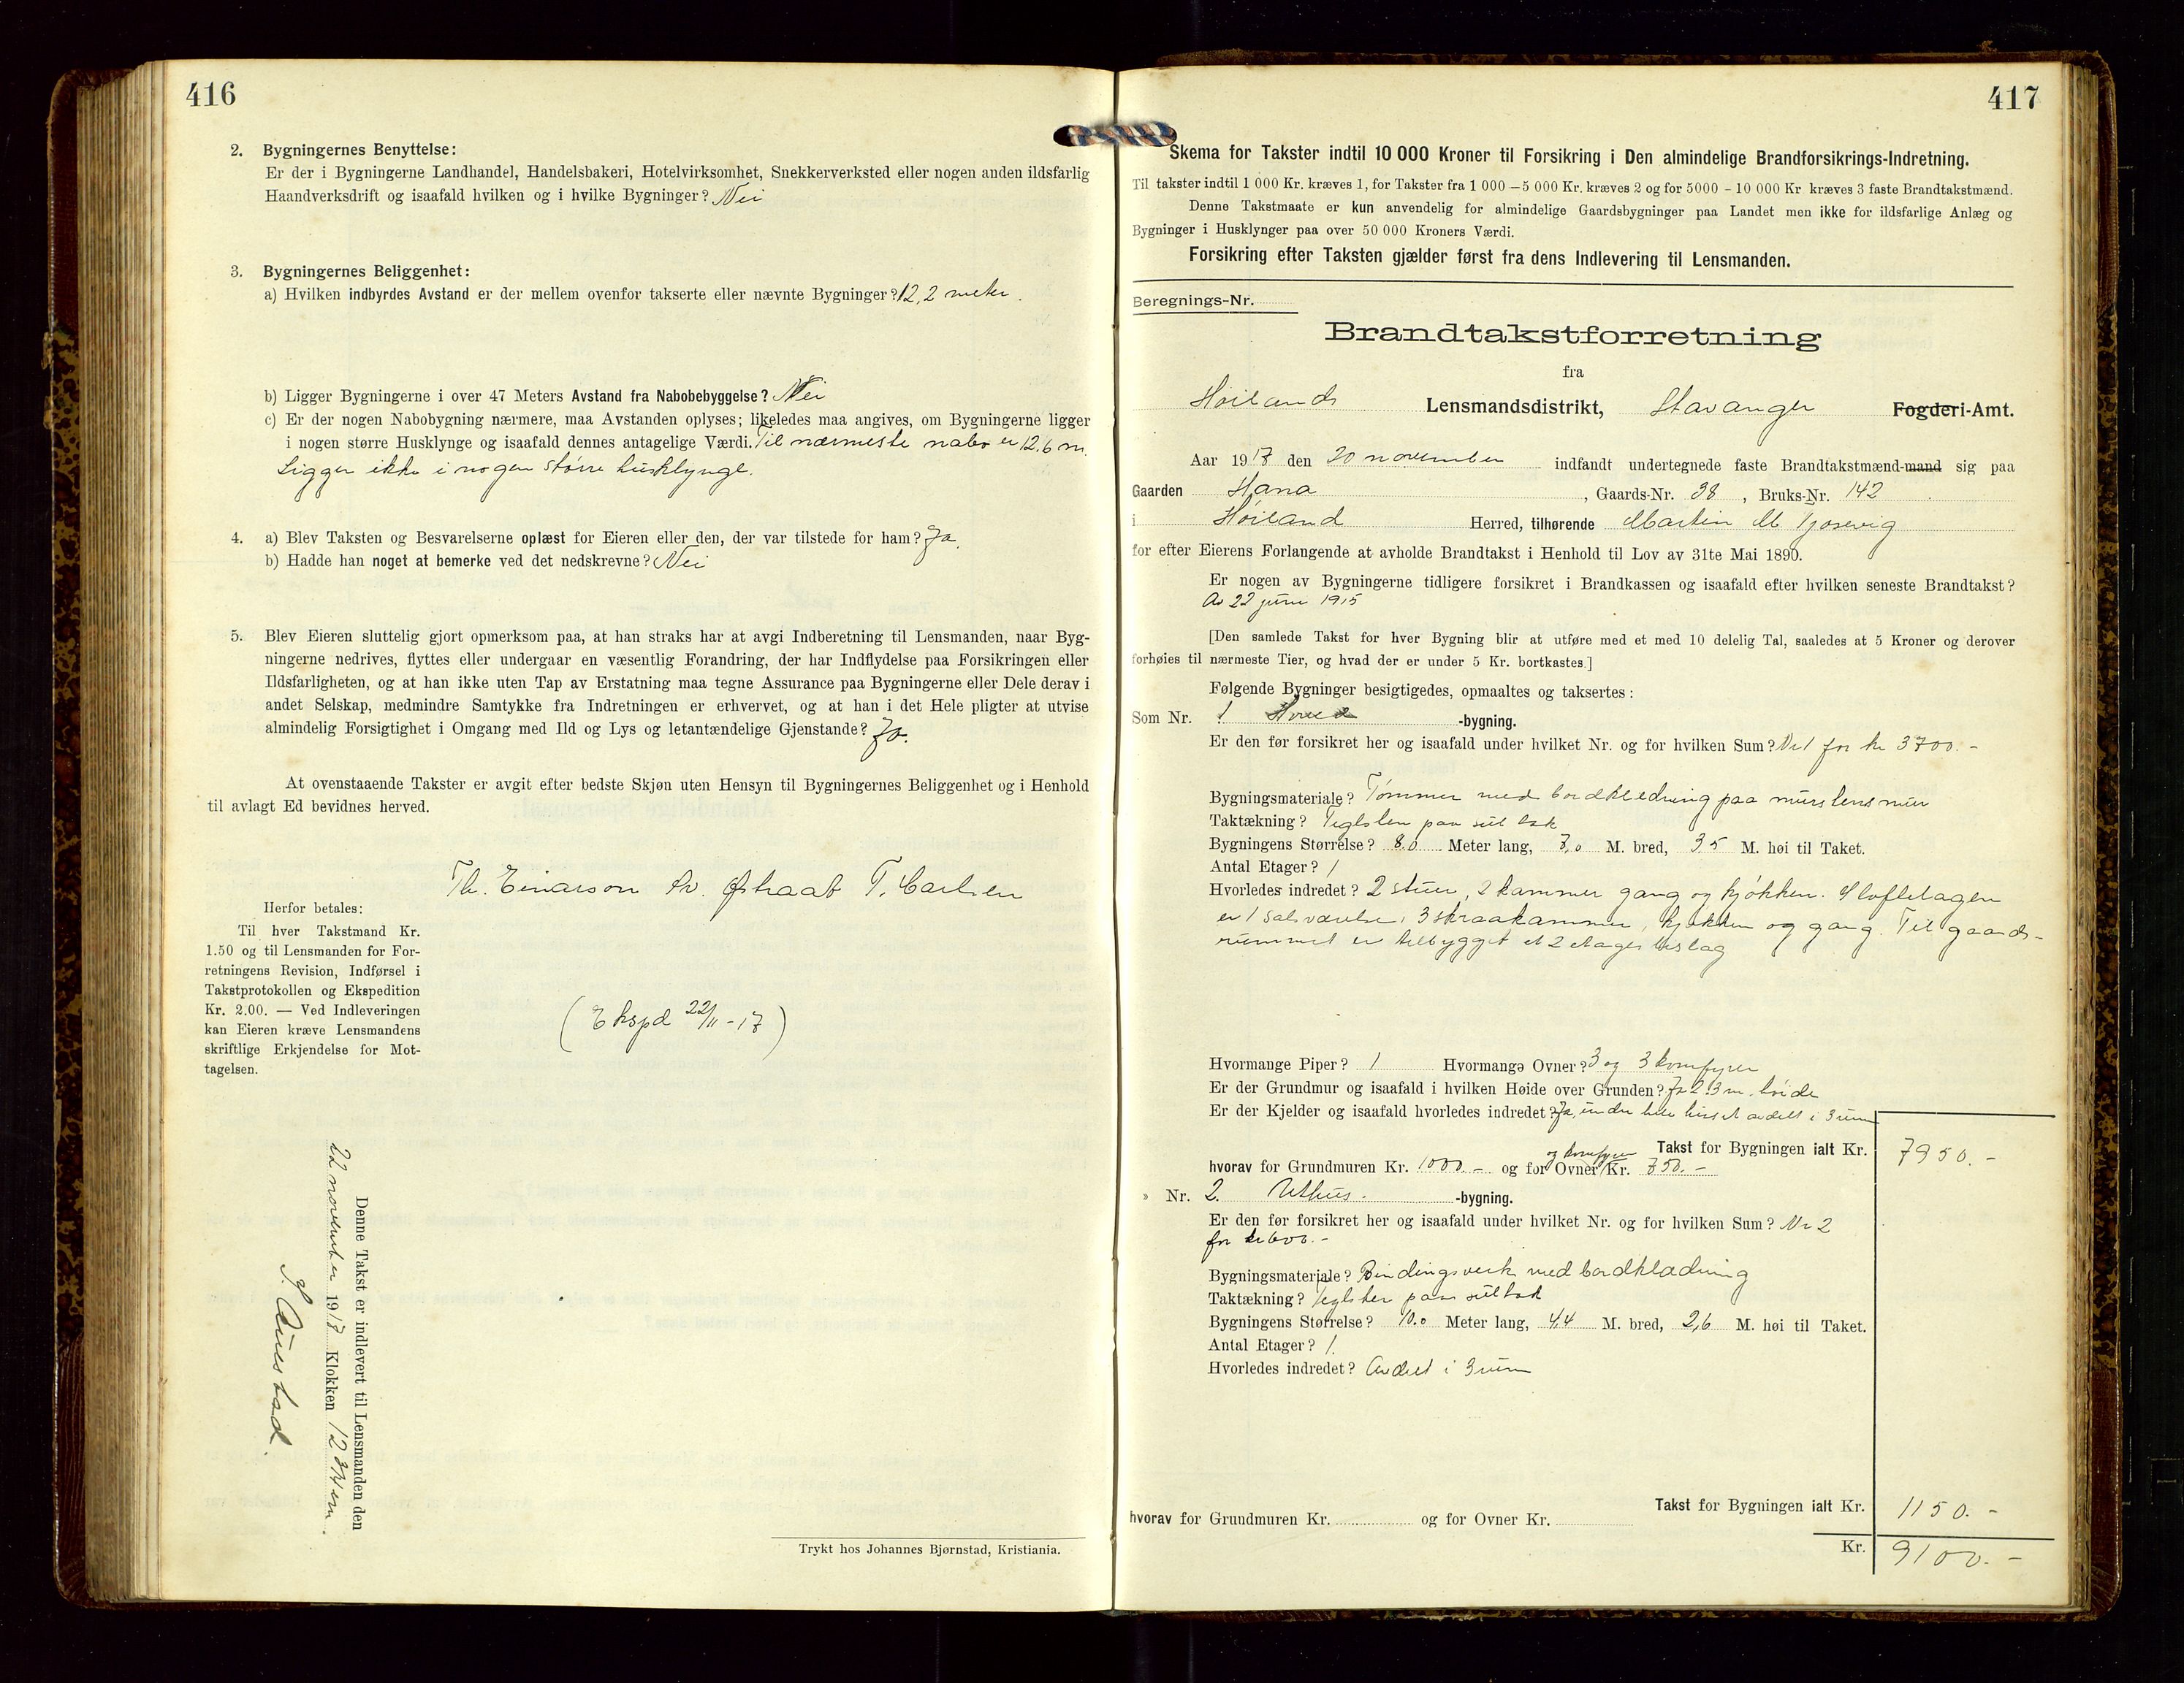 416
2. Bygningernes Benyttelse:
Er der i Bygningerne Landhandel, Handelsbakeri, Hotelvirksomhet, Snekkerverksted eller nogen anden ildsfarlig
Haandverksdrift og isaafald hvilken og i hvilke Bygninger? Nei
3. Bygningernes Beliggenhet:
a) Hvilken indbyrdes Avstand er der mellem ovenfor takserte eller nævnte Bygninger? 12,2 meter.
b) Ligger Bygningerne i over 47 Meters Avstand fra Nabobebyggelse? Nei
c) Er der nogen Nabobygning nærmere, maa Avstanden oplyses; likeledes maa angives, om Bygningerne ligger
i nogen større Husklynge og isaafald dennes antagelige Værdi. Til nærmeste nabo er 12,6 m.
Ligger ikke i nogen større husklynge.
4. a) Blev Taksten og Besvarelserne oplæst for Eieren eller den, der var tilstede for ham? Ja.
b) Hadde han noget at bemerke ved det nedskrevne? Nei
5. Blev Eieren sluttelig gjort opmerksom paa, at han straks har at avgi Indberetning til Lensmanden, naar Byg-
ningerne nedrives, flyttes eller undergaar en væsentlig Forandring, der har Indflydelse paa Forsikringen eller
Ildsfarligheten, og at han ikke uten Tap av Erstatning maa tegne Assurance paa Bygningerne eller Dele derav i
andet Selskap, medmindre Samtykke fra Indretningen er erhvervet, og at han i det Hele pligter at utvise
almindelig Forsigtighet i Omgang med Ild og Lys og letantændelige Gjenstande? Ja.
At ovenstaaende Takster er avgit efter bedste Skjøn uten Hensyn til Bygningernes Beliggenhet og i Henhold
til avlagt Ed bevidnes herved.
Th. Einarson Av. Østraat T. Carlsen
Herfor betales:
Til hver Takstmand Kr.
1.50 og til Lensmanden for For-
retningens Revision, Indførsel i
Takstprotokollen og Ekspedition
Kr. 2.00. — Ved Indleveringen
kan Eieren kræve Lensmandens
skriftlige Erkjendelse for Mot-
tagelsen.
(Ekspd 22/11-17)
Denne Takst er indlevert til Lensmanden den
22 november 1917 Klokken 12
Trykt hos Johannes Bjørnstad, Kristiania.
417
Skema for Takster indtil 10 000 Kroner til Forsikring i Den almindelige Brandforsikrings-Indretning.
Til takster indtil 1 000 Kr. kræves 1, for Takster fra 1 000 – 5 000 Kr. kræves 2 og for 5000 – 10 000 Kr kræves 3 faste Brandtakstmænd.
Denne Takstmaate er kun anvendelig for almindelige Gaardsbygninger paa Landet men ikke for ildsfarlige Anlæg og
Bygninger i Husklynger paa over 50 000 Kroners Værdi.
Forsikring efter Taksten gjælder først fra dens Indlevering til Lensmanden.
Beregnings-Nr.
Brandtakstforretning
fra
Høilands Lensmandsdistrikt, Stavanger Fogderi-Amt.
Aar 1917 den 20 november indfandt undertegnede faste Brandtakstmænd-mand sig paa
Gaarden Hana, Gaards-Nr. 38, Bruks-Nr. 142
i Høiland Herred, tilhørende Martin M
for efter Eierens Forlangende at avholde Brandtakst i Henhold til Lov av 31te Mai 1890.
Er nogen av Bygningerne tidligere forsikret i Brandkassen og isaafald efter hvilken seneste Brandtakst?
Av 22 juni 1915
[Den samlede Takst for hver Bygning blir at utføre med et med 10 delelig Tal, saaledes at 5 Kroner og derover
forhøies til nærmeste Tier, og hvad der er under 5 Kr. bortkastes.]
Følgende Bygninger besigtigedes, opmaaltes og taksertes:
Som Nr. 1 -bygning.
Er den før forsikret her og isaafald under hvilket Nr. og for hvilken Sum? Nr 1 for kr 3700.-
Bygningsmateriale? Tømmer med bordklædning paa murstensmur
Taktækning? Teglsten paa sutak
Bygningens Størrelse? 8.0 Meter lang, 7,0 M. bred, 3,5 M. høi til Taket.
Antal Etager? 1
Hvorledes indredet? 2 stuer, 2 kammer gang og kjøkken. I loftetagen
er 1 salsværelse, 3 skraakammer, kjøkken og gang. Til gaards-
rummet er tilbygget et 2 etages bislag
Hvormange Piper? 1 Hvormange Ovner? 3 og 3 komfyrer
Er der Grundmur og isaafald i hvilken Høide over Grunden? Ja 2.3 m. høide
Er der Kjelder og isaafald hvorledes indredet? Ja, under hele huset avdelt i 3 rum
Takst for Bygningen ialt Kr. 7950.-
hvorav for Grundmuren Kr. 1000.- og for Ovner og komfyrer Kr. 750.-
» Nr. 2. Uthus. -bygning.
Er den før forsikret her og isaafald under hvilket Nr. og for hvilken Sum? Nr 2
for kr 600.-
Bygningsmateriale? Bindingsverk med bordklædning
Taktækning? Teglsten paa sutak
Bygningens Størrelse? 10.0 Meter lang, 4,4 M. bred, 2,6 M. høi til Taket.
Antal Etager? 1.
Hvorledes indredet? Avdelt i 3 rum
Takst for Bygningen ialt Kr. 1150.-
hvorav for Grundmuren Kr. og for Ovner Kr.
Kr. 9100.-